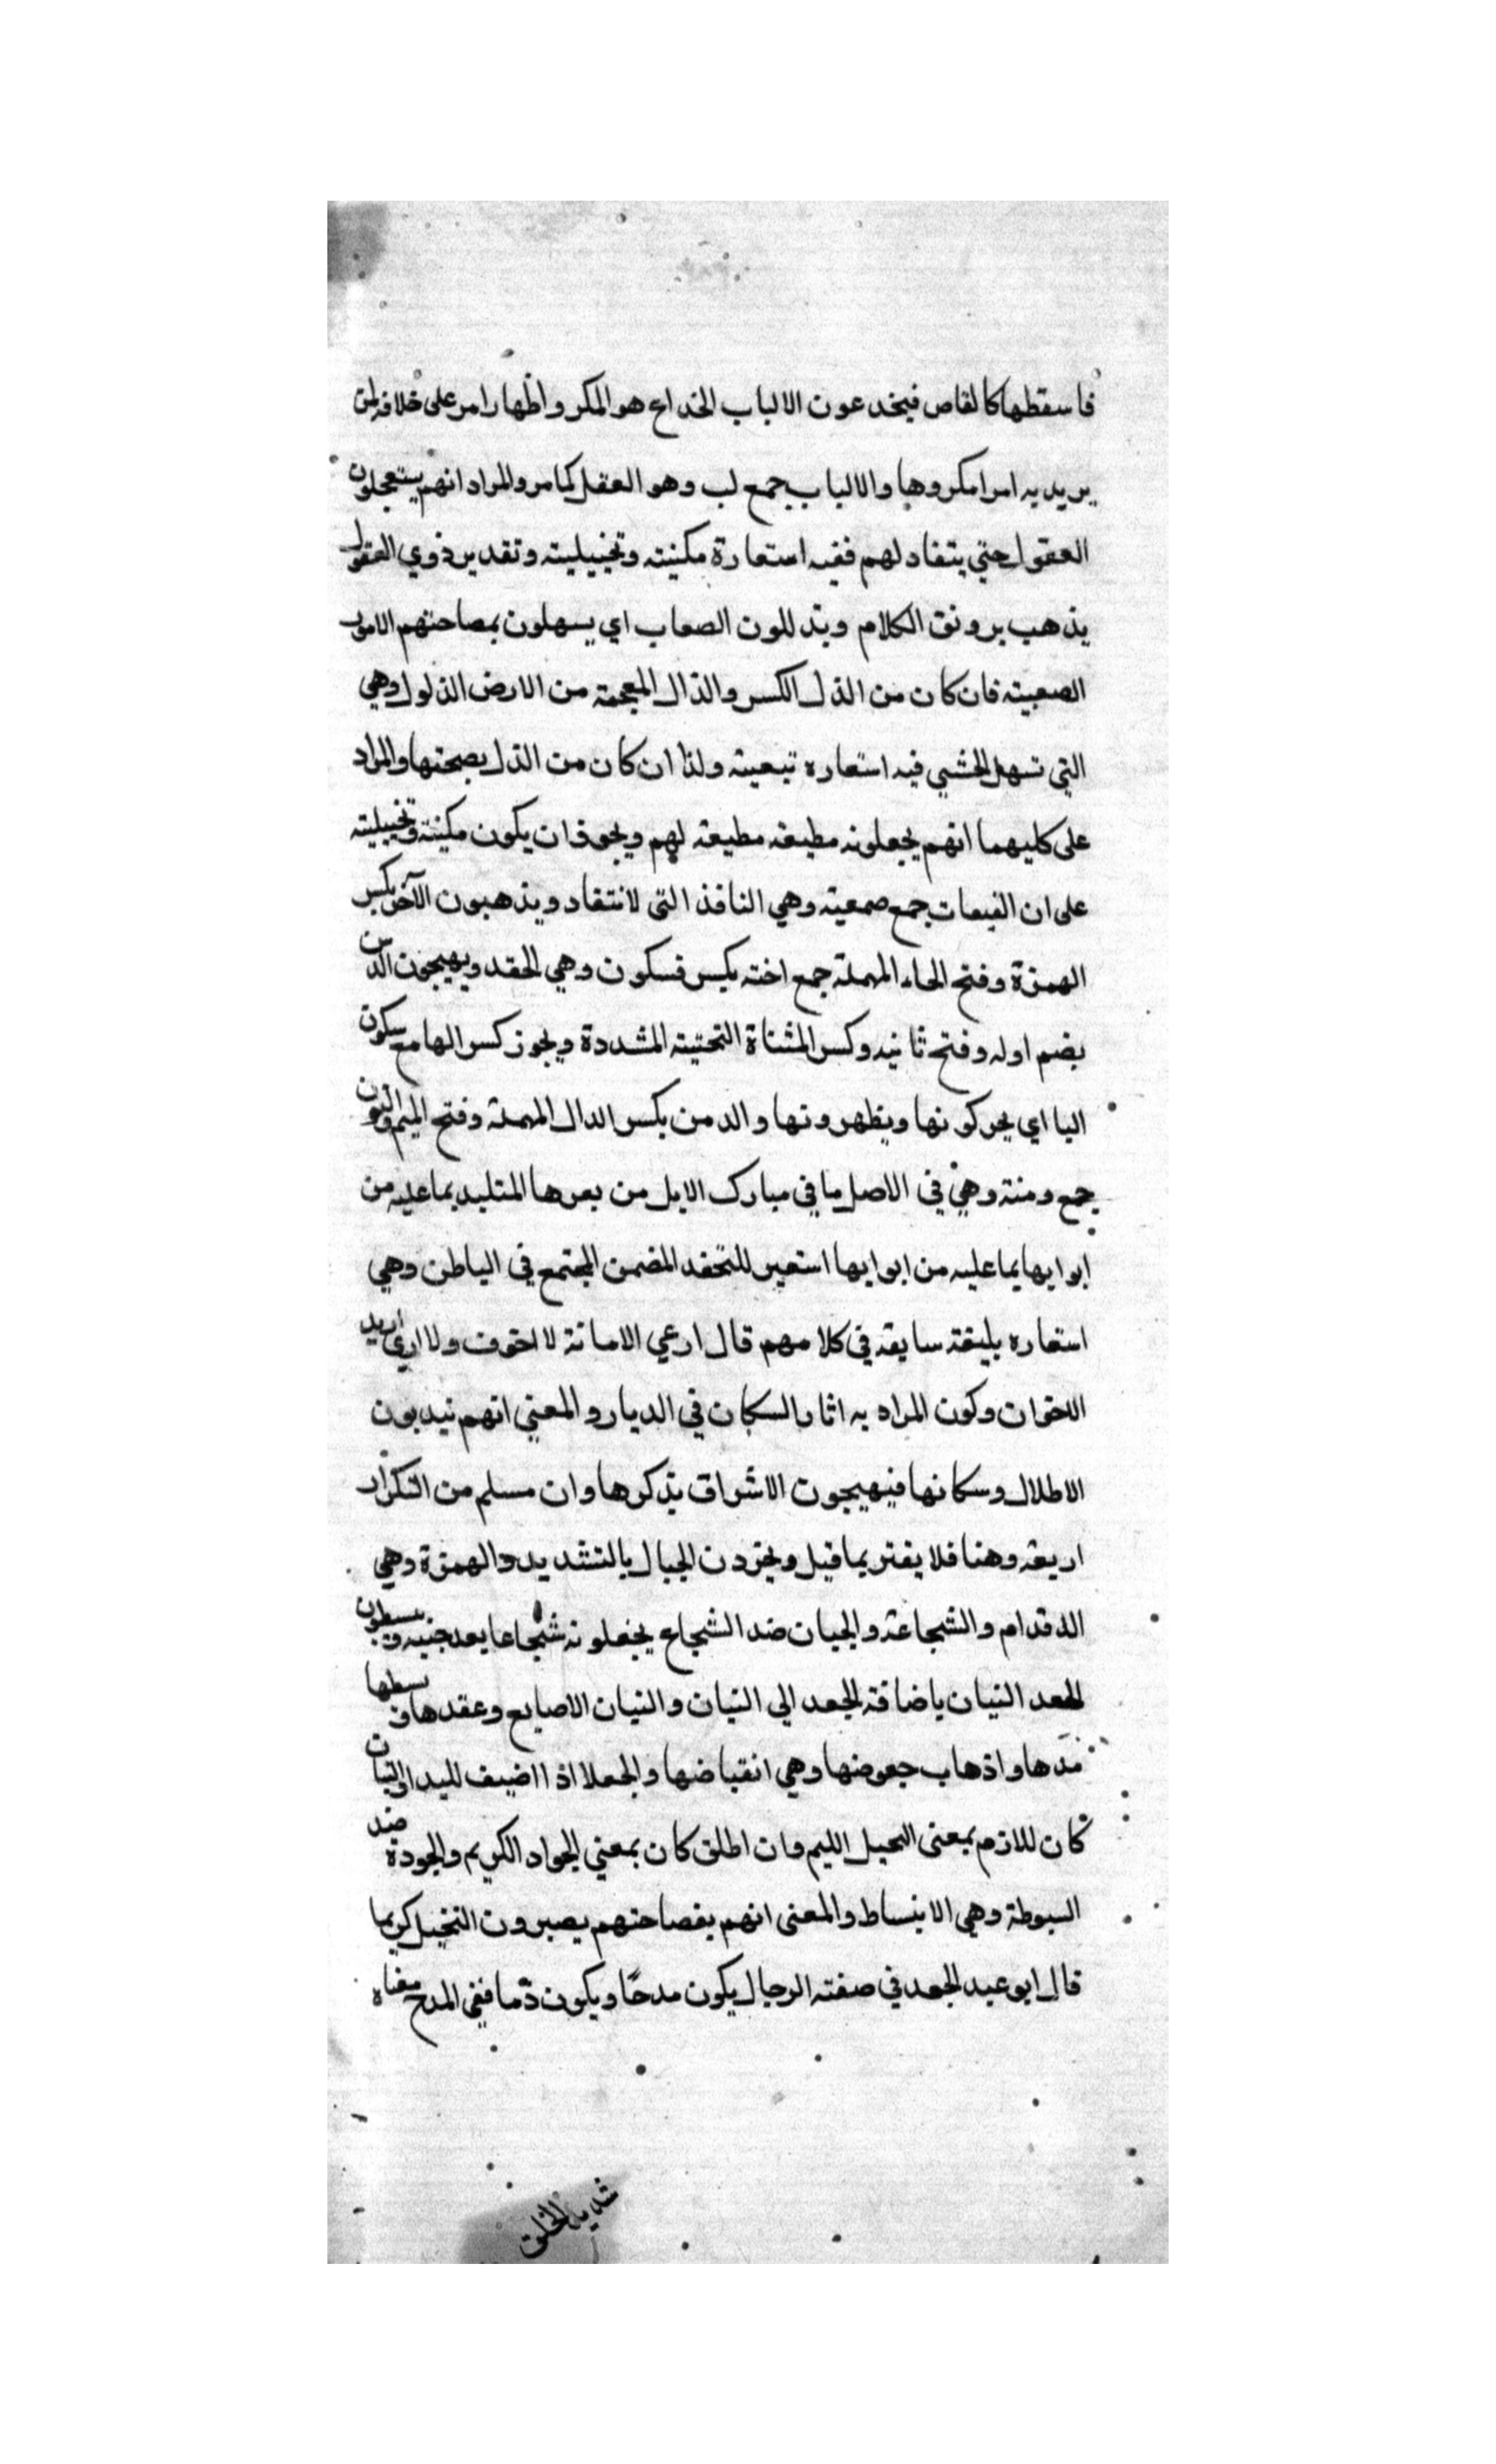 فاسقطها كالقاص فيخدعون الالباب الخداع هو المكر واظهار امر على خلافه لمن
يريد به امرا مكروها والالباب جمع لب وهو العقل كما مر والمراد انهم يستعجلون
العقول حتي يتقاد لهم ففيه استعارة مكنيته وتخييليته وتقدير ذوي العقول
يذهب برونق الكلام ويذللون الصعاب اي يسهلون بمصاحتهم الامور
الصعبيته فان كان من الذل الكسر والذال المعجمة من الارض الذلول وهي
التي تسهل للخشبي فيه استعاره تبعيته ولذا ان كان من الذل بصحتها والمراد
على كليهما انهم يجعلونه مطيعة مطيعة لهم ويجوز ان يكون مكنية وتخييليته
على ان الفيعات جمع صمعيته وهي النافذ التي لانتقاد ويذهبون الآخن بكسر
الهمزة وفتح الحاء المهملة جمع اخته بكسر فسكون وهي الحقد ويهيجون الدمن
بضم اوله وفتح ثانيه وكسر المثناة التحتيته المشددة ويجوز كسر الها مع سكون
اليا اي يحركونها ويظهرونها والدمن بكسر الدال المهملة وفتح الميم والنون
جمع ومنة وهي في الاصل ما في مبارك الابل من بعرها المتلبد بما عليه من
ابوابها بما عليه من ابوابها استعير للتحقد المضمن المجتمع في الباطن وهي
استعاره بليغة سايقه في كلامهم قال ارعي الامانة لا اخون ولا اري اريد
الاخوان وكون المراد به اثار السكان في الديار والمعني انهم نيدبون
الاطلال وسكانها فيهيجون الاشراق بذكرها وان مسلم من التكرار
اريعة وهنا فلا يفتر بما قيل ويخردن الجبال بالتشديد والهمزة وهي
الاقدام والشجاعة والجبان ضد الشجاع يجعلونه شجاعا بعد جنبه ويبسطون
لجعد البنيان باضافة الجعد الي البنيان والبنيان الاصابع وعقدها وبسطها
مدها واذهاب جعوضها وهي انقباضها والجعلا اذا اضيف لليد او البنيان
كان للازم بمعنى البحيل الليم وان اطلق كان بمعني الجواد الكريم والجودة ضد
السبوطة وهي الانبساط والمعنى انهم بفصاحتهم يصيرون البخيل كريما
قال ابو عبد الجعد في صفته الرجال يكون مدحا ويكون ذما ففي المدح معناه
شديد الخلق